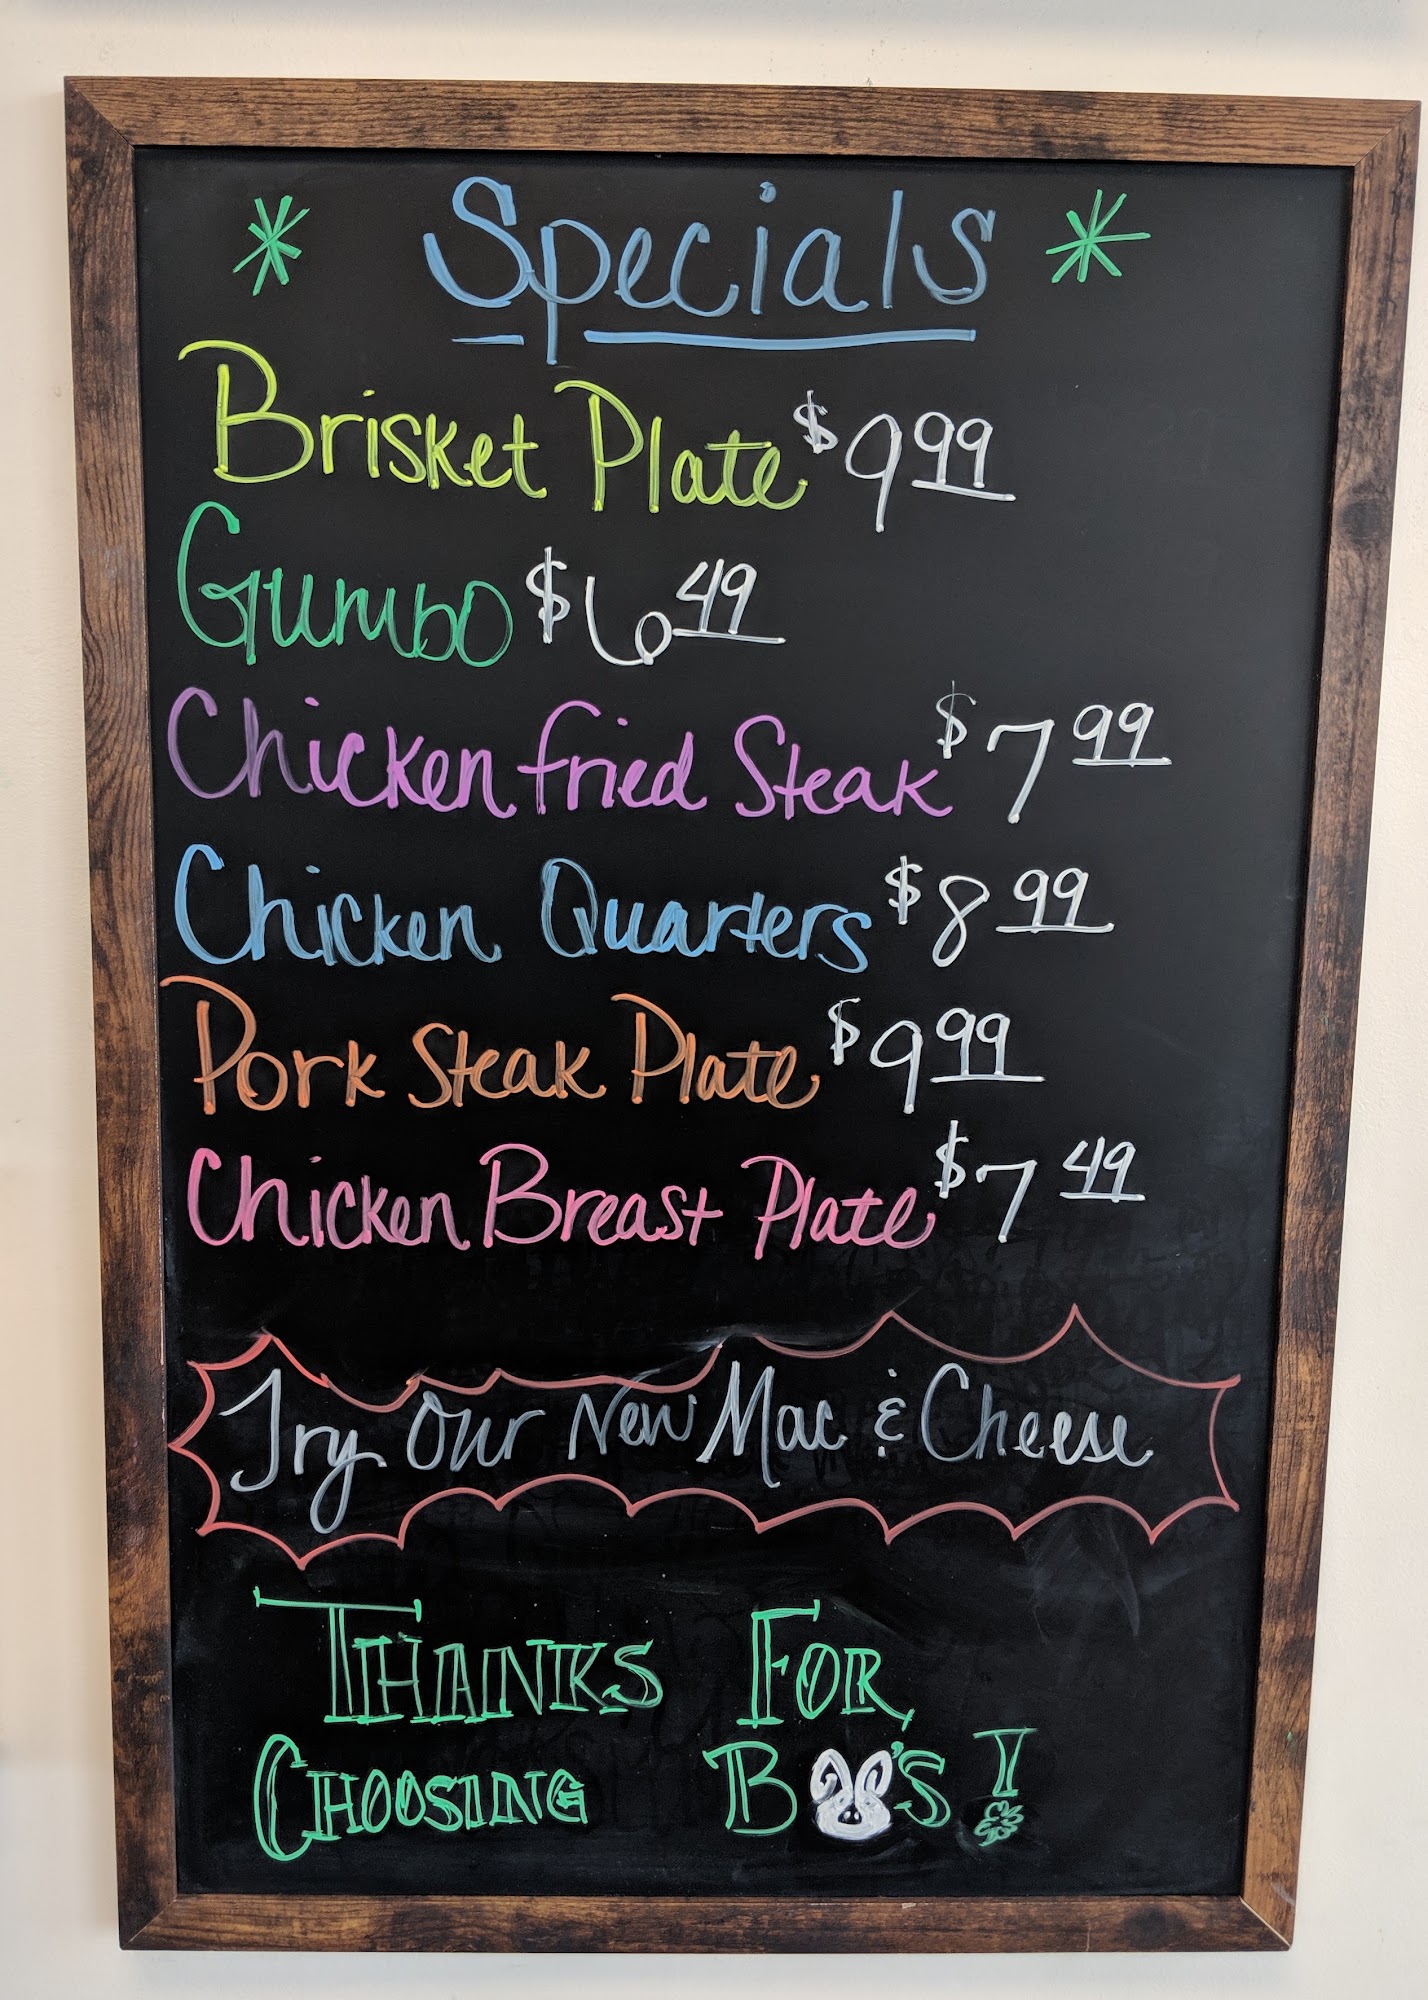 * Specials *
Brisket Plate $9.99
Gumbo $6.49
Chicken fried Steak $7.99
Chicken Quarters $8.99
Pork Steak Plate $9.99
Chicken Breast Plate $7.49
Try our New Mac & Cheese
THANKS FOR
CHOOSING BO'S!